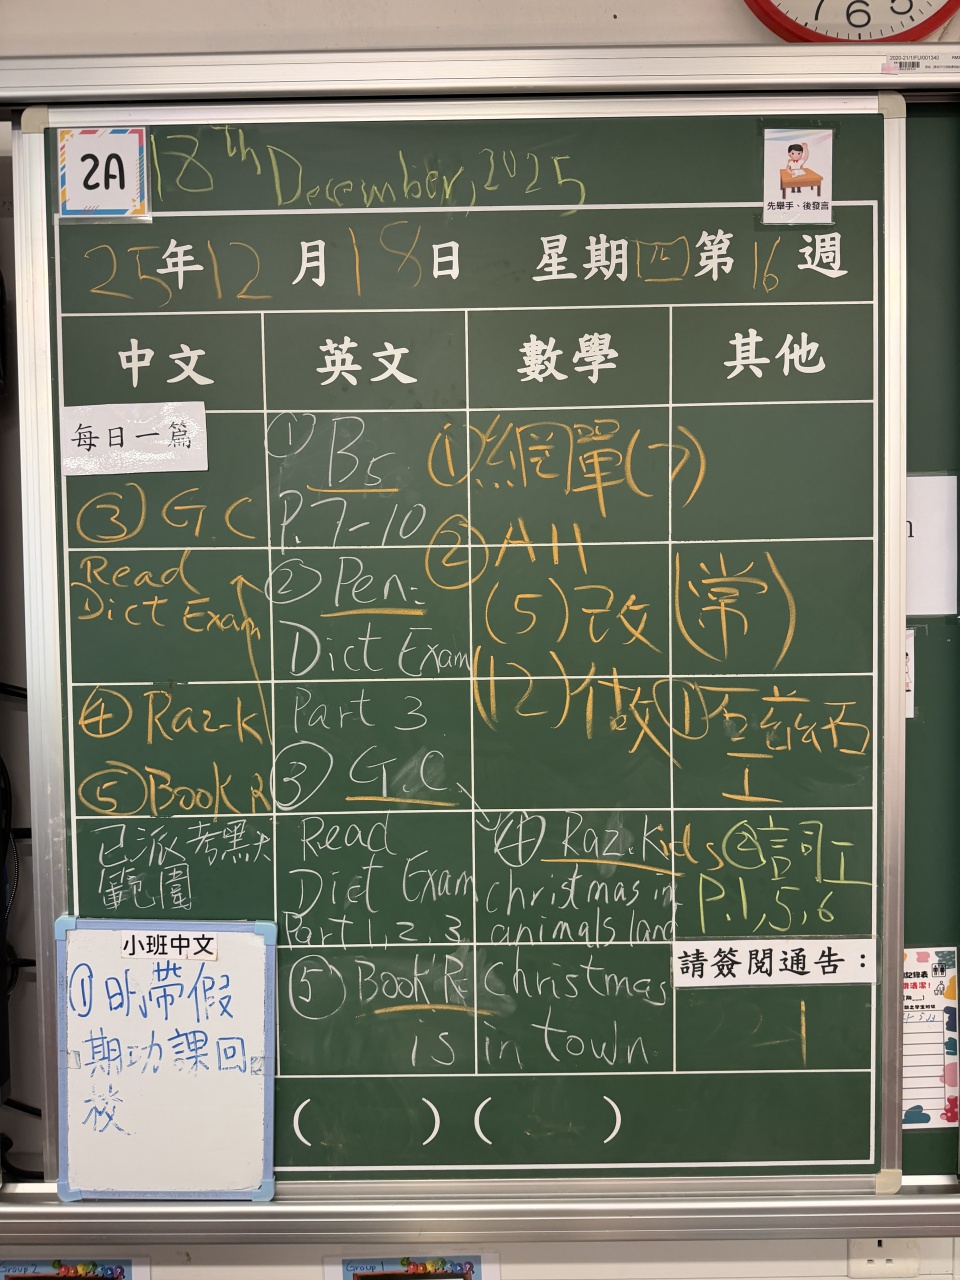 7 6 5
2020-21/1/FU/001340
2A
18th December, 2025
先舉手、後發言
25年12月18日 星期四第16週
中文 英文 數學 其他
每日一篇
③ G.C
Read
Dict Exam
④ Raz-K
⑤ Book R
已派考默
範圍
小班中文
①明帶假
期功課回
校
① B5
P.7-10
② Pen:
Dict Exam
Part 3
③ G.C.
Read
Dict Exam
Part 1, 2, 3
④ Raz-Kids
christmas in
animals land
⑤ Book R: Christmas
is in town
( ) ( )
①網單(7)
② A11
(5)改
(12)做
(常)
工
②詞工
P.1,5,6
請簽閱通告：
1
Group 2
Group 1